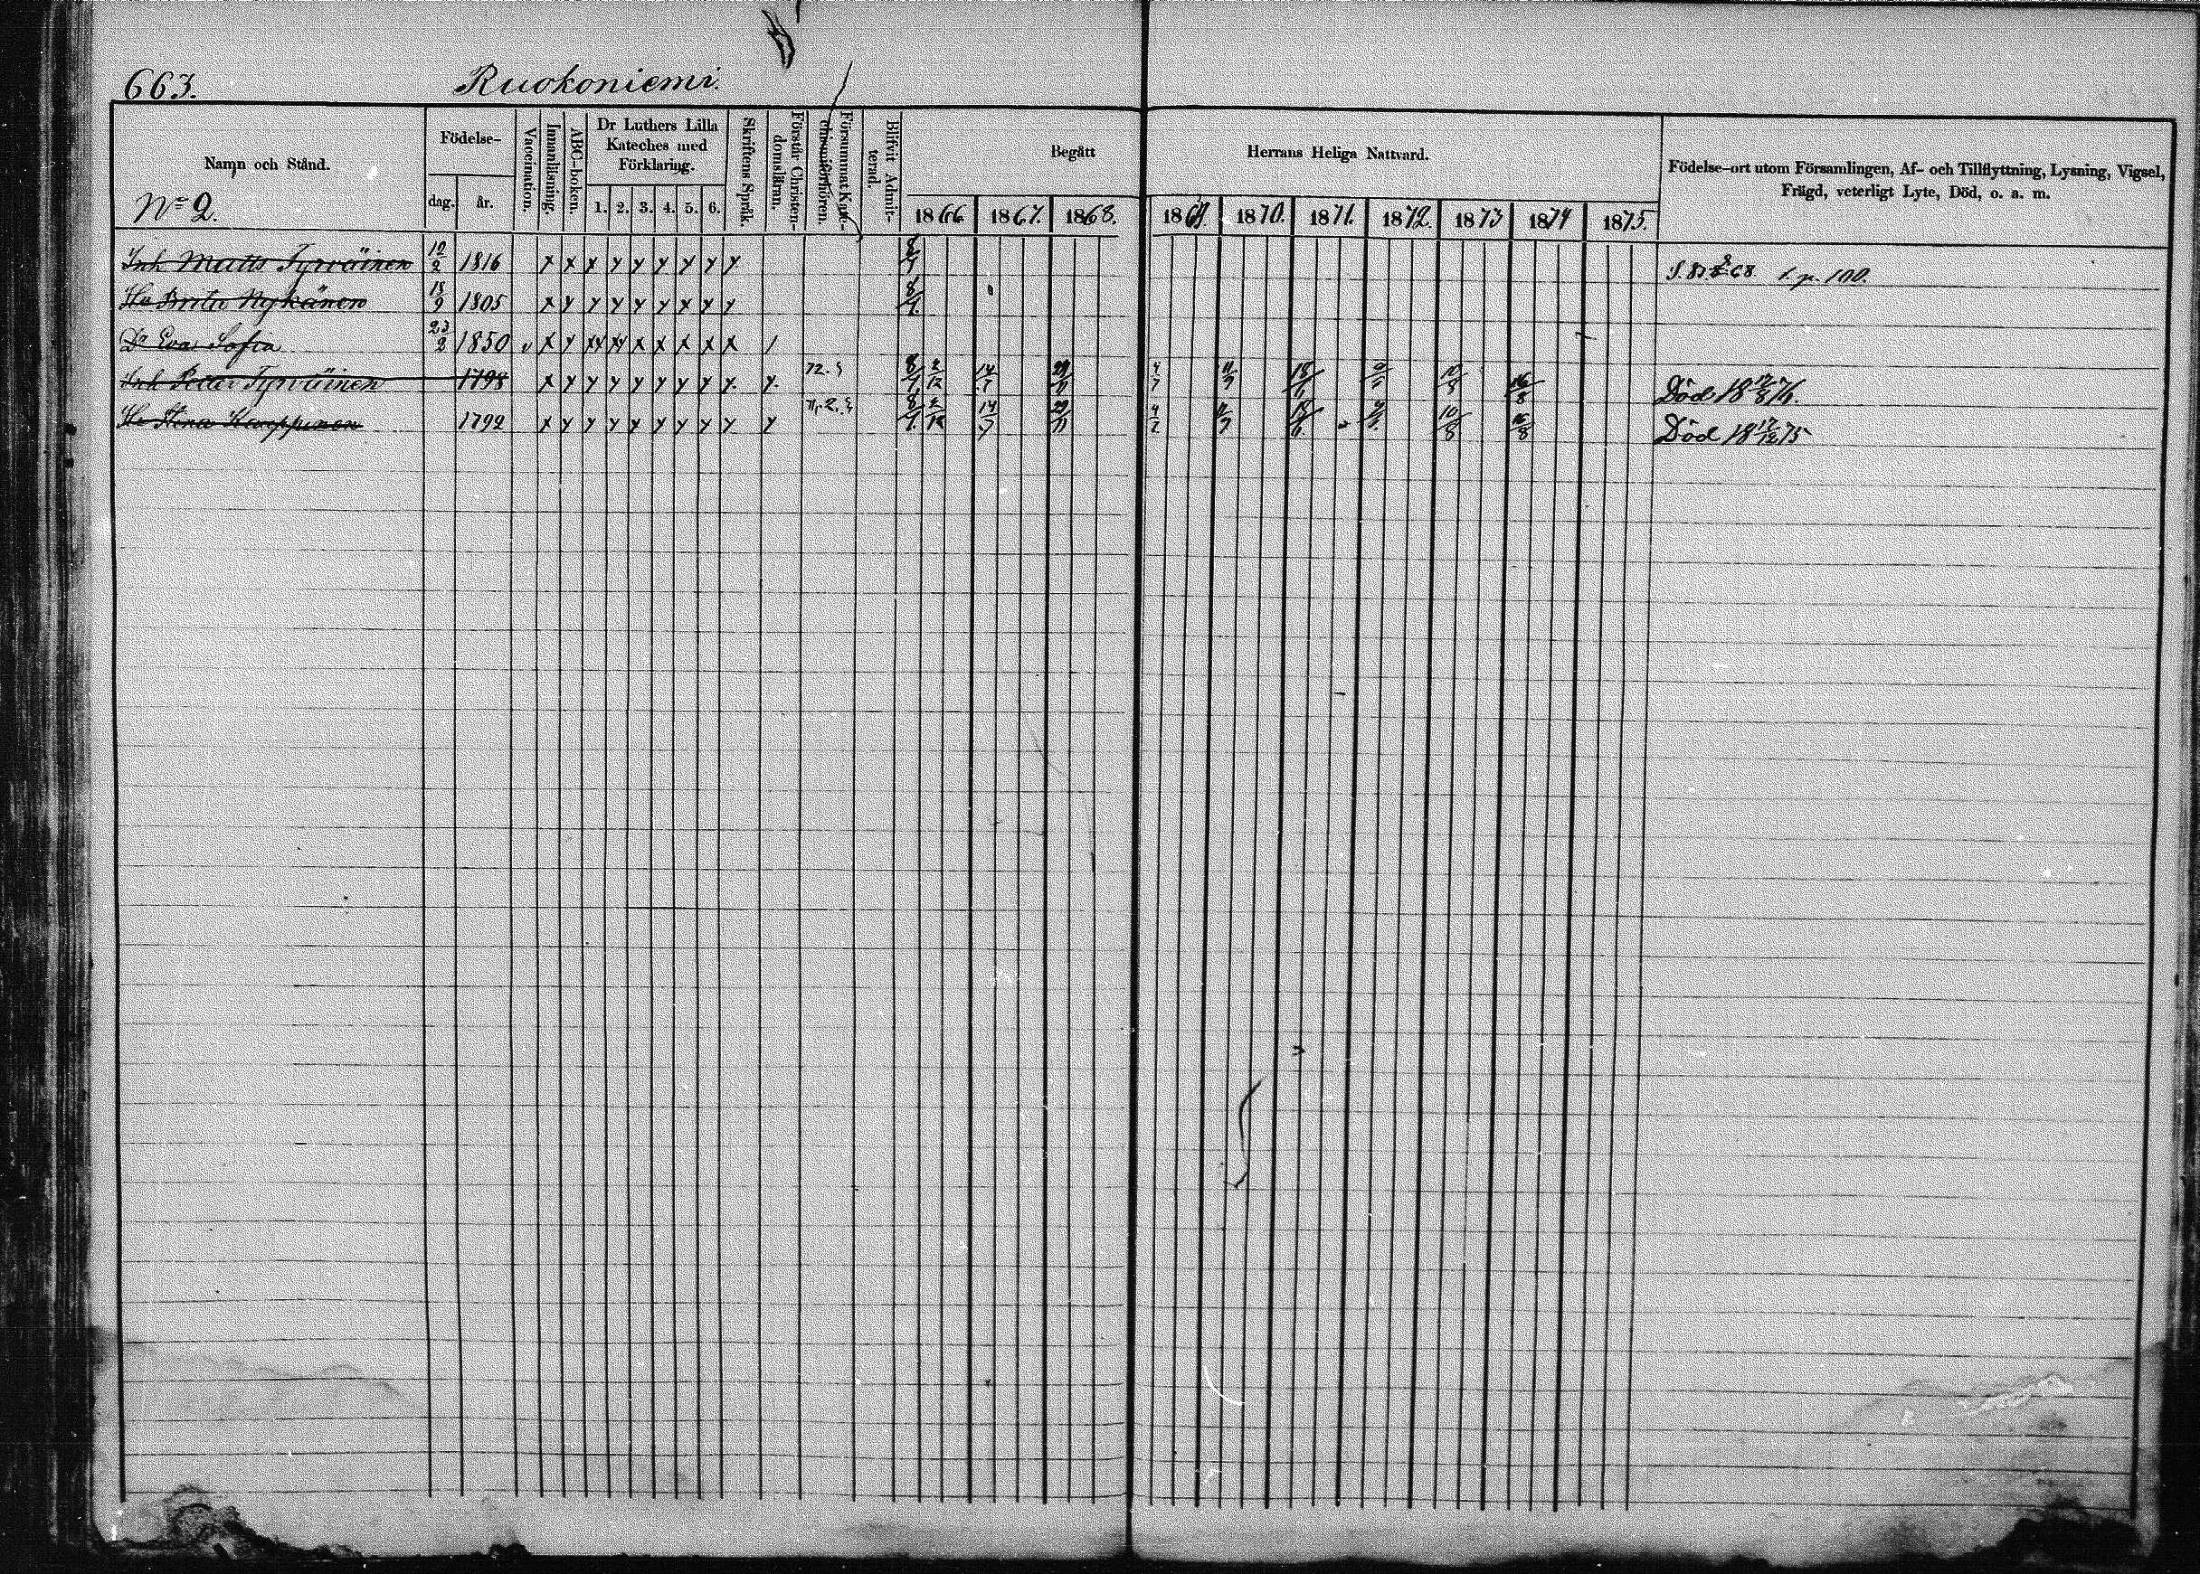 663. Ruokoniemi.
Namn och Stånd.
No 2.
Födelse-
dag. år.
Vaccination.
Innanläsning.
ABC-boken.
Dr Luthers Lilla
Kateches med
Förklaring.
1. 2. 3. 4. 5. 6.
Skriftens Språk.
Förstår Christen-
domsläran.
Försummat Kate-
chismiförhören.
Blifvit Admit-
terad.
Begått Herrans Heliga Nattvard.
1866. 1867. 1868. 1869. 1870. 1871. 1872. 1873 1874 1875.
Födelse-ort utom Församlingen, Af- och Tillflyttning, Lysning, Vigsel,
Frägd, veterligt Lyte, Död, o. a. m.
Inh Matts Tyrväinen 12/2 1816 x x x y y y y y y 8/7 1. p. 100.
Hu Brita Nykänen 18/9 1805 x y y y y y x y y 8/7
Dr Eva Sofia 23/2 1850 v x y xy xy x x x x x /
Inh Petter Tyrväinen 1798 x y y y y y y y y. y. 8/7 2/12 14/7 29/11 4/7 11/9 10/8 16/8 Död 18 17/8 76.
Hu Stina Kauppinen 1792 x y y y y y y y y y 8/7 2/12 14/7 29/11 4/7 11/9 10/8 16/8 Död 18 17/12 75